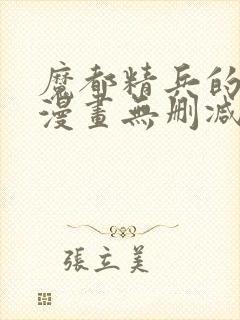 魔都精兵的
漫畫無刪減
張立美